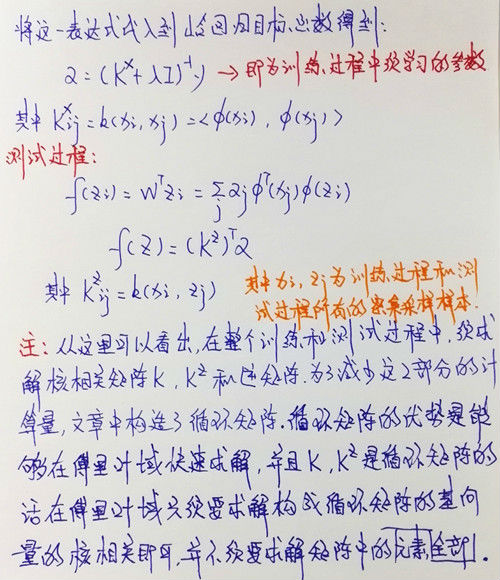 将这一表达式代入到岭回归目标函数得到:
α = (Kˣ + λI)⁻¹y → 即为训练过程中须学习的参数
其中 Kˣij = k(xi, xj) = <φ(xi), φ(xj)>
测试过程:
f(zi) = Wᵀzi = Σj αj φᵀ(xj)φ(zi)
f(z) = (Kᶻ)ᵀα
其中 Kᶻij = k(xi, zj) 其中xi, zj为训练过程和测
试过程所有的密集采样样本.
注: 从这里可以看出,在整个训练和测试过程中,须求
解核相关矩阵K, Kᶻ和逆矩阵.为了减少这2部分的计
算量,文章中构造了循环矩阵.循环矩阵的优势是能
够在傅里叶域快速求解,并且K, Kᶻ是循环矩阵的
话在傅里叶域只须要求解构成循环矩阵的基向
量的核相关即可,并不须要求解矩阵中的元素全部.